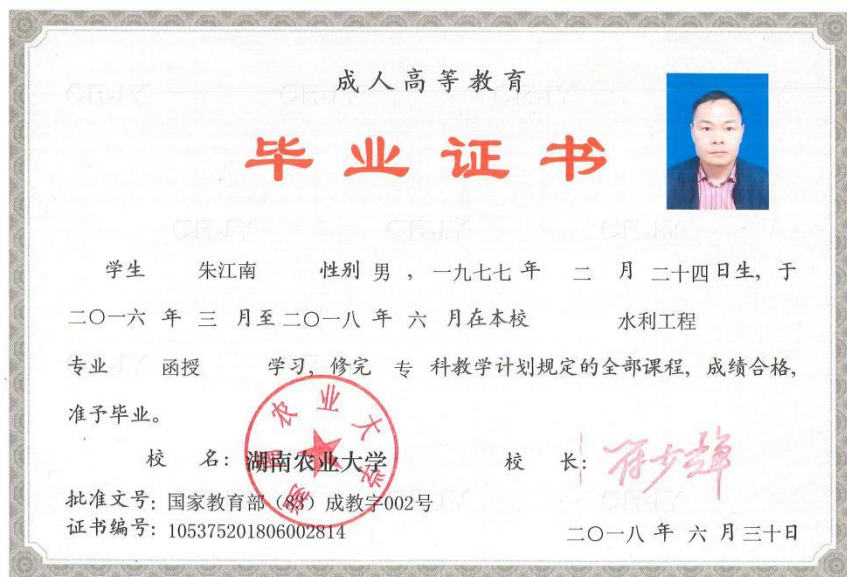 成人高等教育
毕业证书
学生 朱江南 性别 男 ，一九七七 年 二 月 二十四日生，于
二〇一六 年 三 月至二〇一八 年 六 月在本校 水利工程
专业 函授 学习，修完 专 科教学计划规定的全部课程，成绩合格，
准予毕业。
校 名：湖南农业大学 校 长：
批准文号：国家教育部（83）成教字002号
证书编号：105375201806002814
二〇一八 年 六 月三十日
湖南农业大学